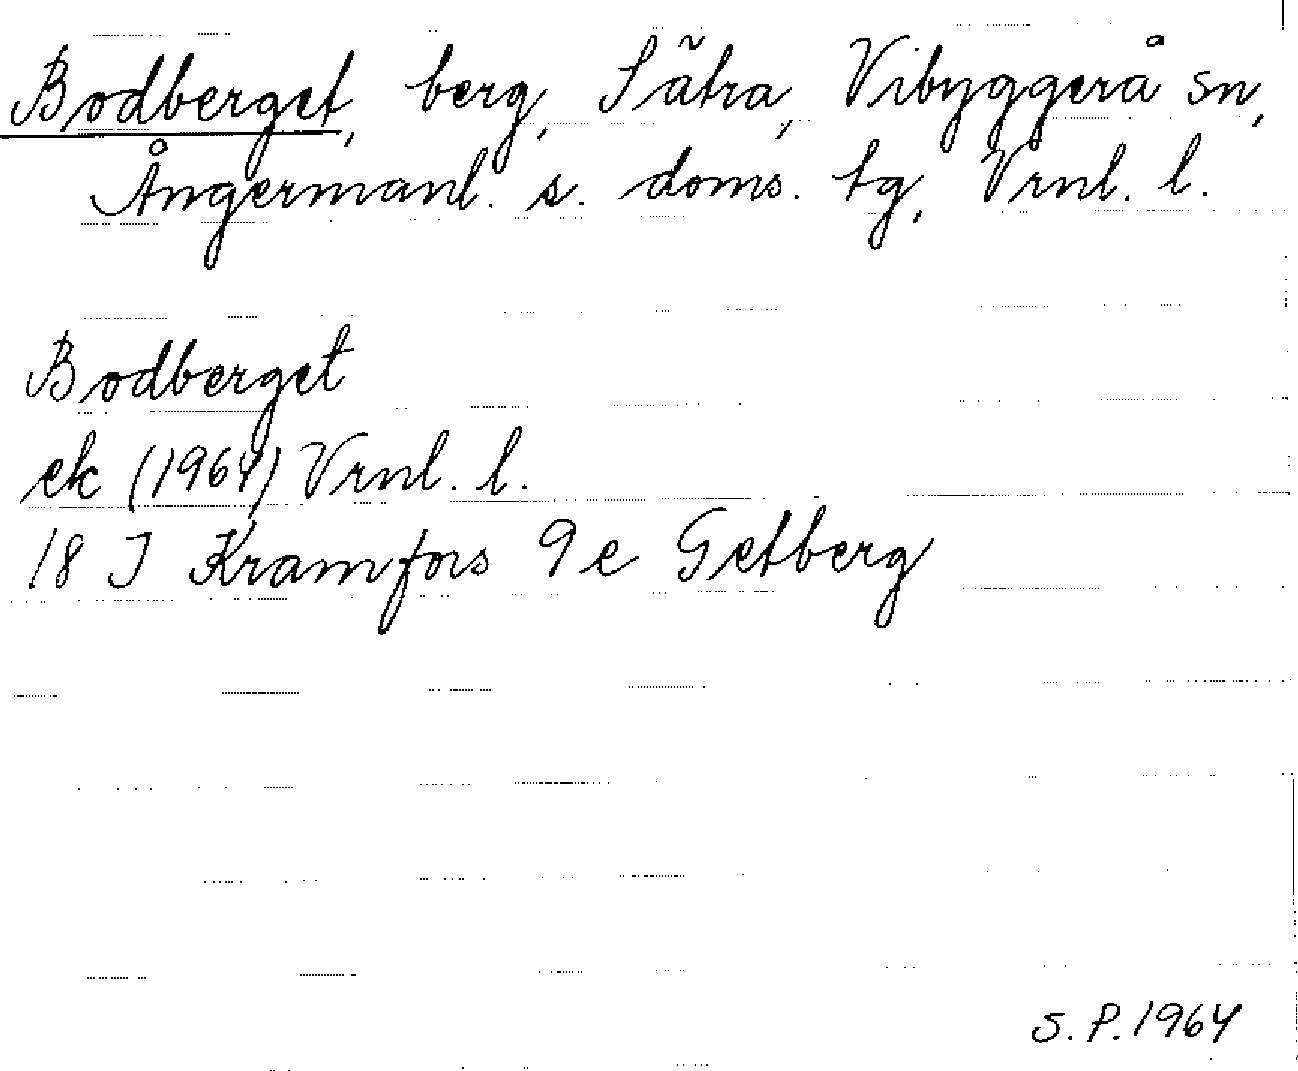 Bodberget, berg, Sätra, Vibyggerå sn,
Ångermanl. s. doms. tg, Vrnl. l.
Bodberget
ek (1964) Vrnl. l.
18 J Kramfors 9e Getberg
S.P. 1964